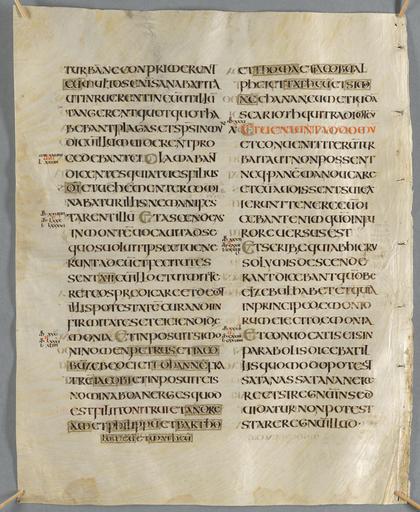 TURBA NE CONPRIMERENT
EŪ MULTOS ENIM SANABAT ITA
UT INRUERENT IN EŪ UT ILLŪ
TANGERENT QUOTQUOT HA
BEBANT PLAGAS ET SPS INMŪ
DI CŪ ILLŪ UIDERENT PRO
CEDEBANT EI CLAMABANT
DICENTES QUIA TU ES FILIUS
DI ET UEHEMENTER COMMI
NABATUR ILLIS NE MANIFES
TARENT ILLŪ ET ASCENDENS
IN MONTĒ UOCAUIT AD SE
QUOS UOLUIT IPSE ET UENE
RUNT AD EŪ ET FECIT UT ES
SENT XII CŪ ILLO ET UT MITTE
RET EOS PRAEDICARE ET DEDIT
ILLIS POTESTATĒ CURANDI IN
FIRMITATES ET EICIENDI DE
MONIA ET INPOSUIT SIMO
NI NOMEN PETRUS ET IACO
BŪ ZEBEDEI ET IOHANNĒ FRA
TRĒ IACOBI ET INPOSUIT EIS
NOMINA BOANERGES QUOD
EST FILII TONITRUI ET ANDRE
AM ET PHILIPPŪ ET BARTHO
LOMEŪ ET MATTHEŪ
ET THOMĀ ET IACOBŪ AL
PHEI ET TATHEŪ ET SIMO
NĒ CHANANEŪ ET IUDA
SCARIOTH QUI TRADIDIT
ET UENIUNT AD DOMŪ
ET CONUENIT ITERŪ TUR
BA ITA UT NON POSSENT
NEQ PANĒ MANDUCARE
ET CŪ AUDISSENT SUI EX
IERUNT TENERE EŪ DI
CEBANT ENIM QUO IN FU
RORE UERSUS EST
ET SCRIBE QUI AB HIERU
SOLYMIS DESCENDE
RANT DICEBANT QUO BE
ELZEBUL HABET ET QUIA
IN PRINCIPE DEMONIO
RUM EICIT DEMONIA
ET CONUOCATIS EIS IN
PARABOLIS DICEBAT IL
LIS QUOMODO POTEST
SATANAS SATANAN EICE
RE ET SI REGNŪ IN SE DI
UIDATUR NON POTEST
STARE REGNŪ ILLUD